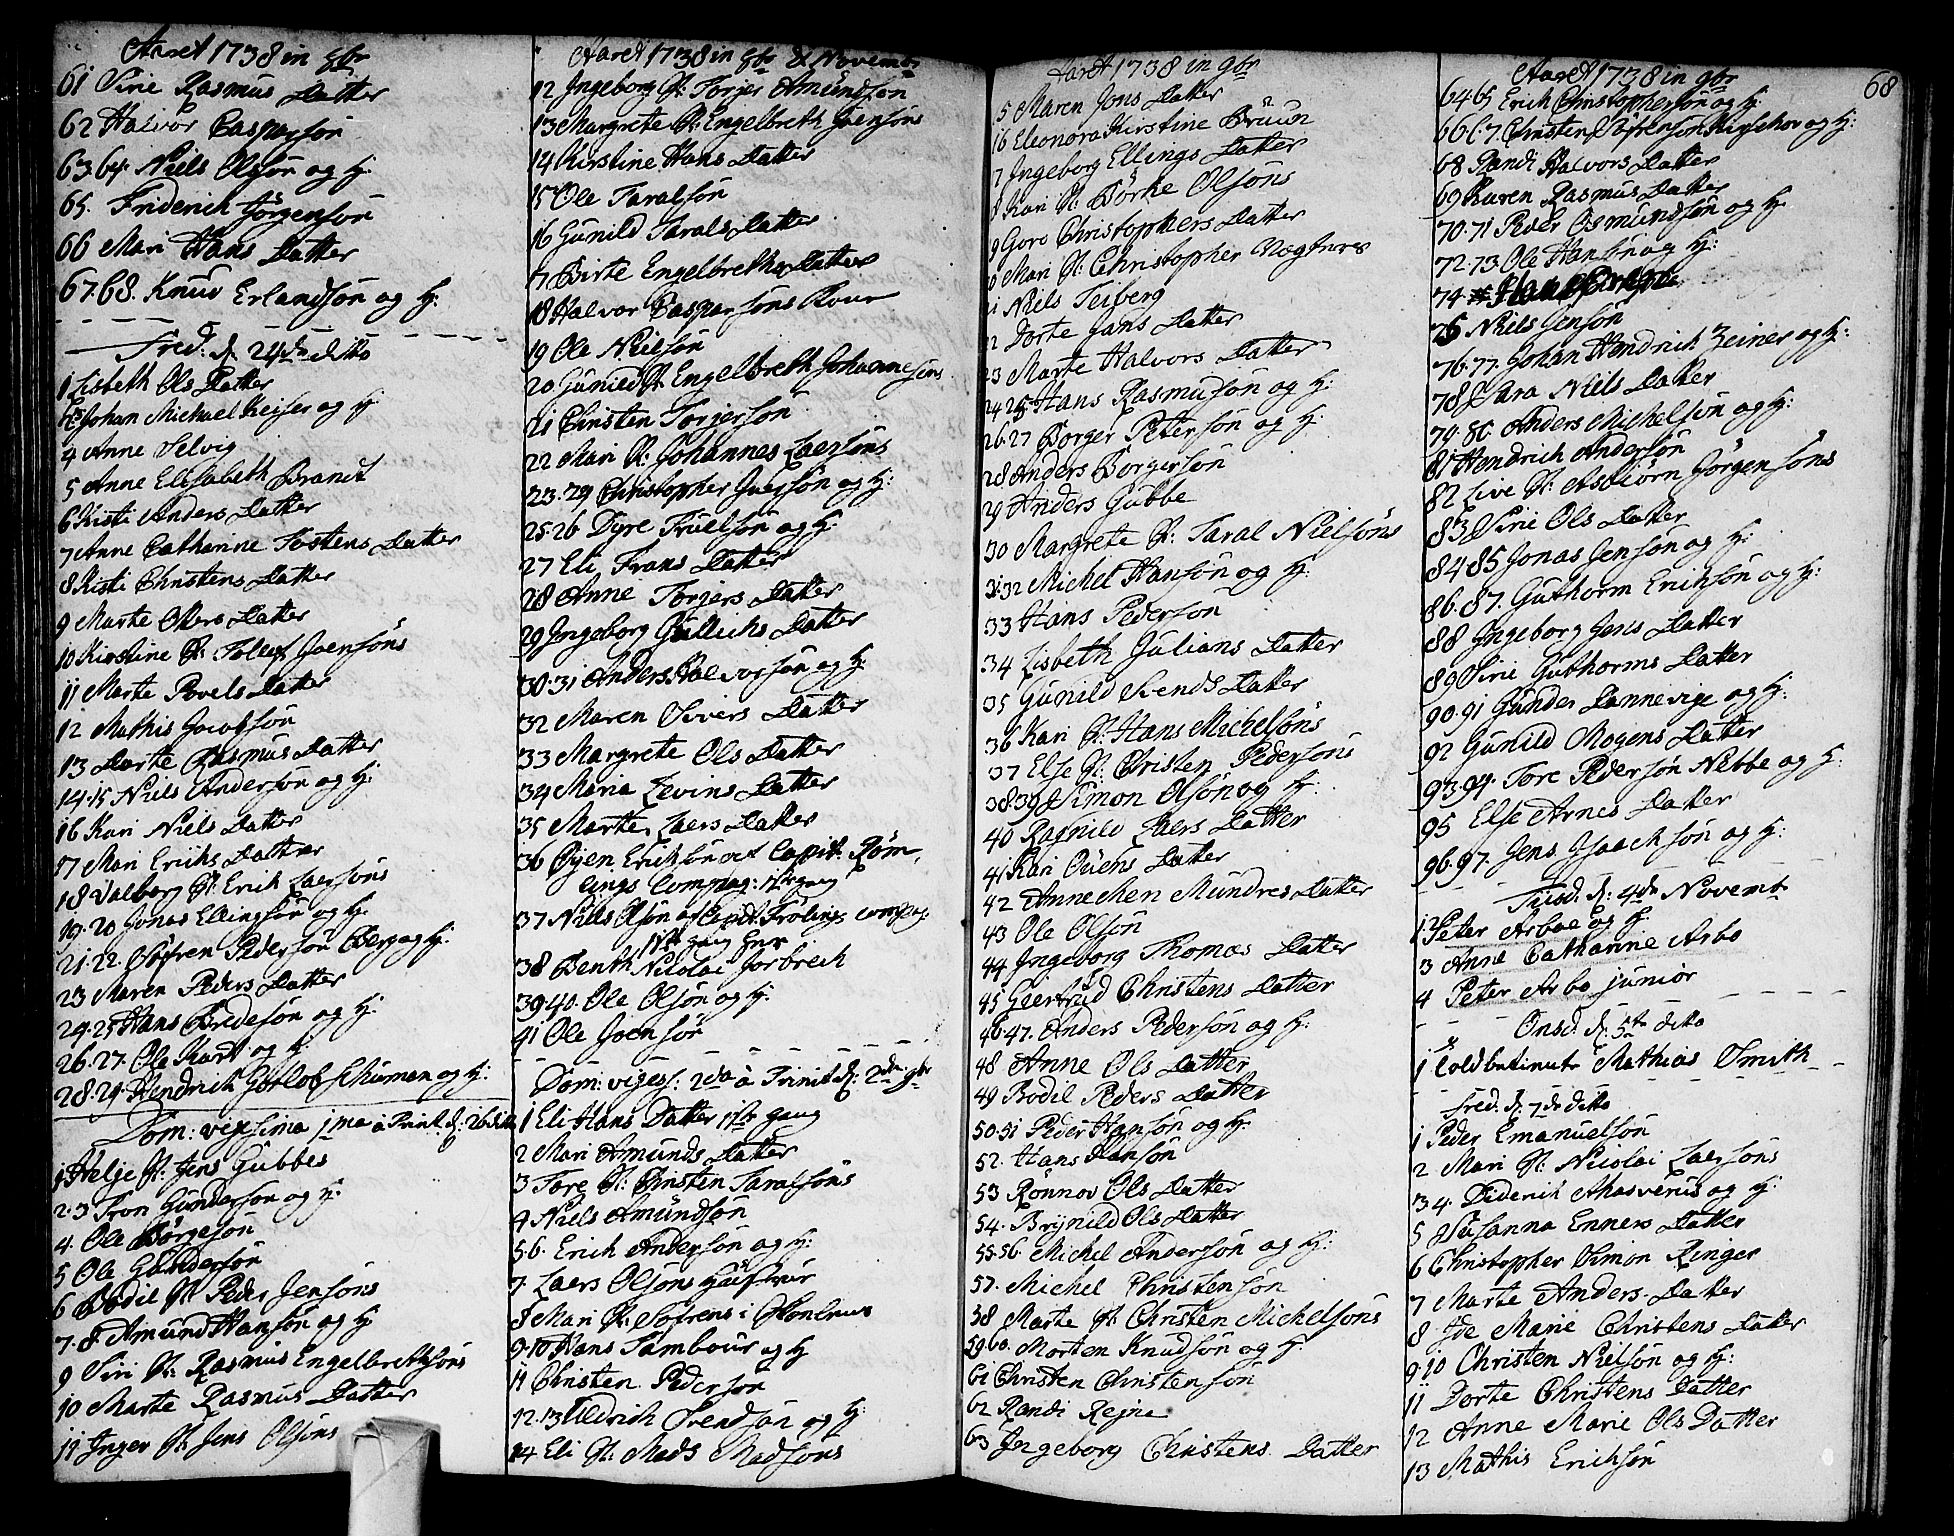 Aaret 1738 in 8br
61 Sirie Rasmus Datter
62 Halvor Casparsøn
63.64. Niels Olsøn og H:
65. Friderich Jørgensøn
66 Mari Hans Datter
67.68. Knud Erlandsøn og H:
Fred: d: 24de ditto
1 Lisbeth Ols Datter
2.3 Johan Michael Keiser og H
4 Anne Selvig
5 Anne Elisabeth Brandt
6 Kisti Anders Datter
7 Anne Catharine Tostens Datter
8 Kisti Christens Datter
9 Marte Ollers Datter
10 Kirstine H: Tollef Joensøns
11 Marte Povels Datter
12 Mathis Jacobsøn
13 Dorte Rasmus Datter
14.15 Niels Andersøn og H:
16 Kari Niels Datter
17 Mari Erichs Datter
18 Valborg H: Erich Laersøns
19.20 Jonas Ellingsøn og H:
21.22. Søfren Pedersøn Berg og H:
23 Maren Peders Datter
24.25 Hans Bredesøn og H:
26.27. Ole Kart og H:
28.29 Hendrich Gotlob Schuman og H:
Dom: vigesima 1ma à Trinit d: 26 ditto
1 Helje H: Jens Gubbes
2.3 Tron Gundersøn og H:
4. Ole Børgesøn
5 Ole Gundersøn
6 Bodil H: Peder Jensøns
7.8 Amund Hansøn og H:
9 Siri H: Rasmus Engelbrethsøns
10 Marte Rasmus Datter
11 Inger H: Jens Olsøns
Aaret 1738 in 8br & Novembr
12 Ingeborg H: Torjer Amundsøn
13 Margrete H: Engelbreth Joensøns
14 Kirstine Hans Datter
15 Ole Taralsøn
16 Gunild Tarals Datter
17 Birte Engelbreths Datter
18 Halvor Caspersøns Kone
19 Ole Nielsøn
20 Gunild H: Engelbreth Johannesøns
21 Christen Torjersøn
22 Mari H: Johannes Laersøns
23.24 Christopher Iversøn og H:
25.26 Dyre Truelsøn og H:
27 Eli Frans Datter
28 Anne Torjers Datter
29 Ingeborg Gullichs Datter
30.31 Anders Halvorsøn og H:
32 Maren Sivers Datter
33 Margrete Ols Datter
34 Maria Levins Datter
35 Marte Laers Datter
36 Øyen Erichsøn af Capit: Røm,
lings Compag: 1ste gang
37 Niels Olsøn af Capit: Frølings compag:
1ste gang
38 Benth Nicolai Jorbrech
39.40. Ole Olsøn og H:
41 Ole Joensøn
Dom: vigess: 2da à Trinit d: 2den 9br
1 Eli Hans Datter 1ste gang
2 Mari Amunds Datter
3 Tore H: Christen Taralsøns
4 Niels Amundsøn
5.6. Erich Andersøn og H:
7. Laers Olsøns
8 Mari H: Søfrens i
9.10 Hans Tambour og H
11 Christen Pedersøn
12.13 Uldrich Svendsøn og H:
14 Eli H: Mads Madsøns
Aaret 1738 in 9br
5 Maren Jons Datter
16 Eleonora Kirstine Bruun
7 Ingeborg Ellings Datter
8 Kari H: Børke Olsøns
9 Goro Christophers Datter
Mari H: Christopher
21 Niels Teiberg
22 Dorte Jans Datter
23 Marte Halvors Datter
24 25 Hans Rasmusøn og H:
26.27 Borger Petersøn og H:
28 Anders Borgersøn
29 Anders Gubbe
30 Margrete H: Taral Nielsøns
31.32 Michel Hansøn og H:
33 Hans Pedersøn
34 Lisbeth Julians Datter
35 Gunild Svends Datter
36 Kari H: Hans Michelsøns
37 Else H: Christen Pedersøns
38.39 Simon Olsøn og H:
40 Ragnild Laers Datter
41 Kari Ouens Datter
42 Annechen Mundres Datter
43 Ole Olsøn
44 Ingeborg Thomas Datter
45 Giertrud Christens Datter
46.47. Anders Pedersøn og H:
48 Anne Ols Datter
49 Bodil Peders Datter
50.51 Peder Hansøn og H:
52. Hans Hansøn
53 Rønnov Ols Datter
54. Brynild Ols Datter
55.56. Michel Andersøn og H:
57. Michel Christensøn
58 Marte H: Christen Michelsøns
59.60. Morten Knudsøn og H:
61 Christen Christensøn
62 Randi Rejna
63 Ingeborg Christens Datter
Aaret 1738 in 9br
68
64 65 Erich Christophersøn og H:
66.67. Christen Søfrensøn og H:
68 Randi Halvors Datter
69 Karen Rasmus Datter
70.71 Peder Osmundsøn og H
72.73. Ole Hansøn og H:
74
75 Niels Jensøn
76.77. Johan Hendrich Zeiner og H:
78 Sara Niels Datter
79.80. Anders Michelsøn og H:
81 Hendrich Andersøn
82 Live H: Asbiørn Jørgensøns
83 Sirie Ols Datter
84 85 Jonas Jensøn og H:
86.87. Guthorm Erichsøn og H:
88 Ingeborg Jens Datter
89 Sirie Guthorms Datter
90.91 Gunder Dannevige og H:
92 Gunild Mogens Datter
93.94. Tore Pedersøn Nebbe og H:
95 Else Arnes Datter
96.97. Jens Isaachsøn og H:
Tirsd: d: 4de Novembr
1.2 Peter Arboe og H:
3 Anne Catharine Arbo
4 Peter Arbo junior
Onsd. d: 5te ditto
1 Mathias Smith
Fred. d: 7de ditto
1 Peder Emanuelsøn
2 Mari H: Nicolai Laersøns
3.4. Diderich Ahasverus og H:
5 Susanna Enners Datter
6 Christopher Simon Ringer
7 Marte Anders Datter
8. Ide Marie Christens Datter
9.10 Christen Nielsøn og H:
11 Dorte Christens Datter
12 Anne Marie Ols Datter
13 Mathis Erichsøn